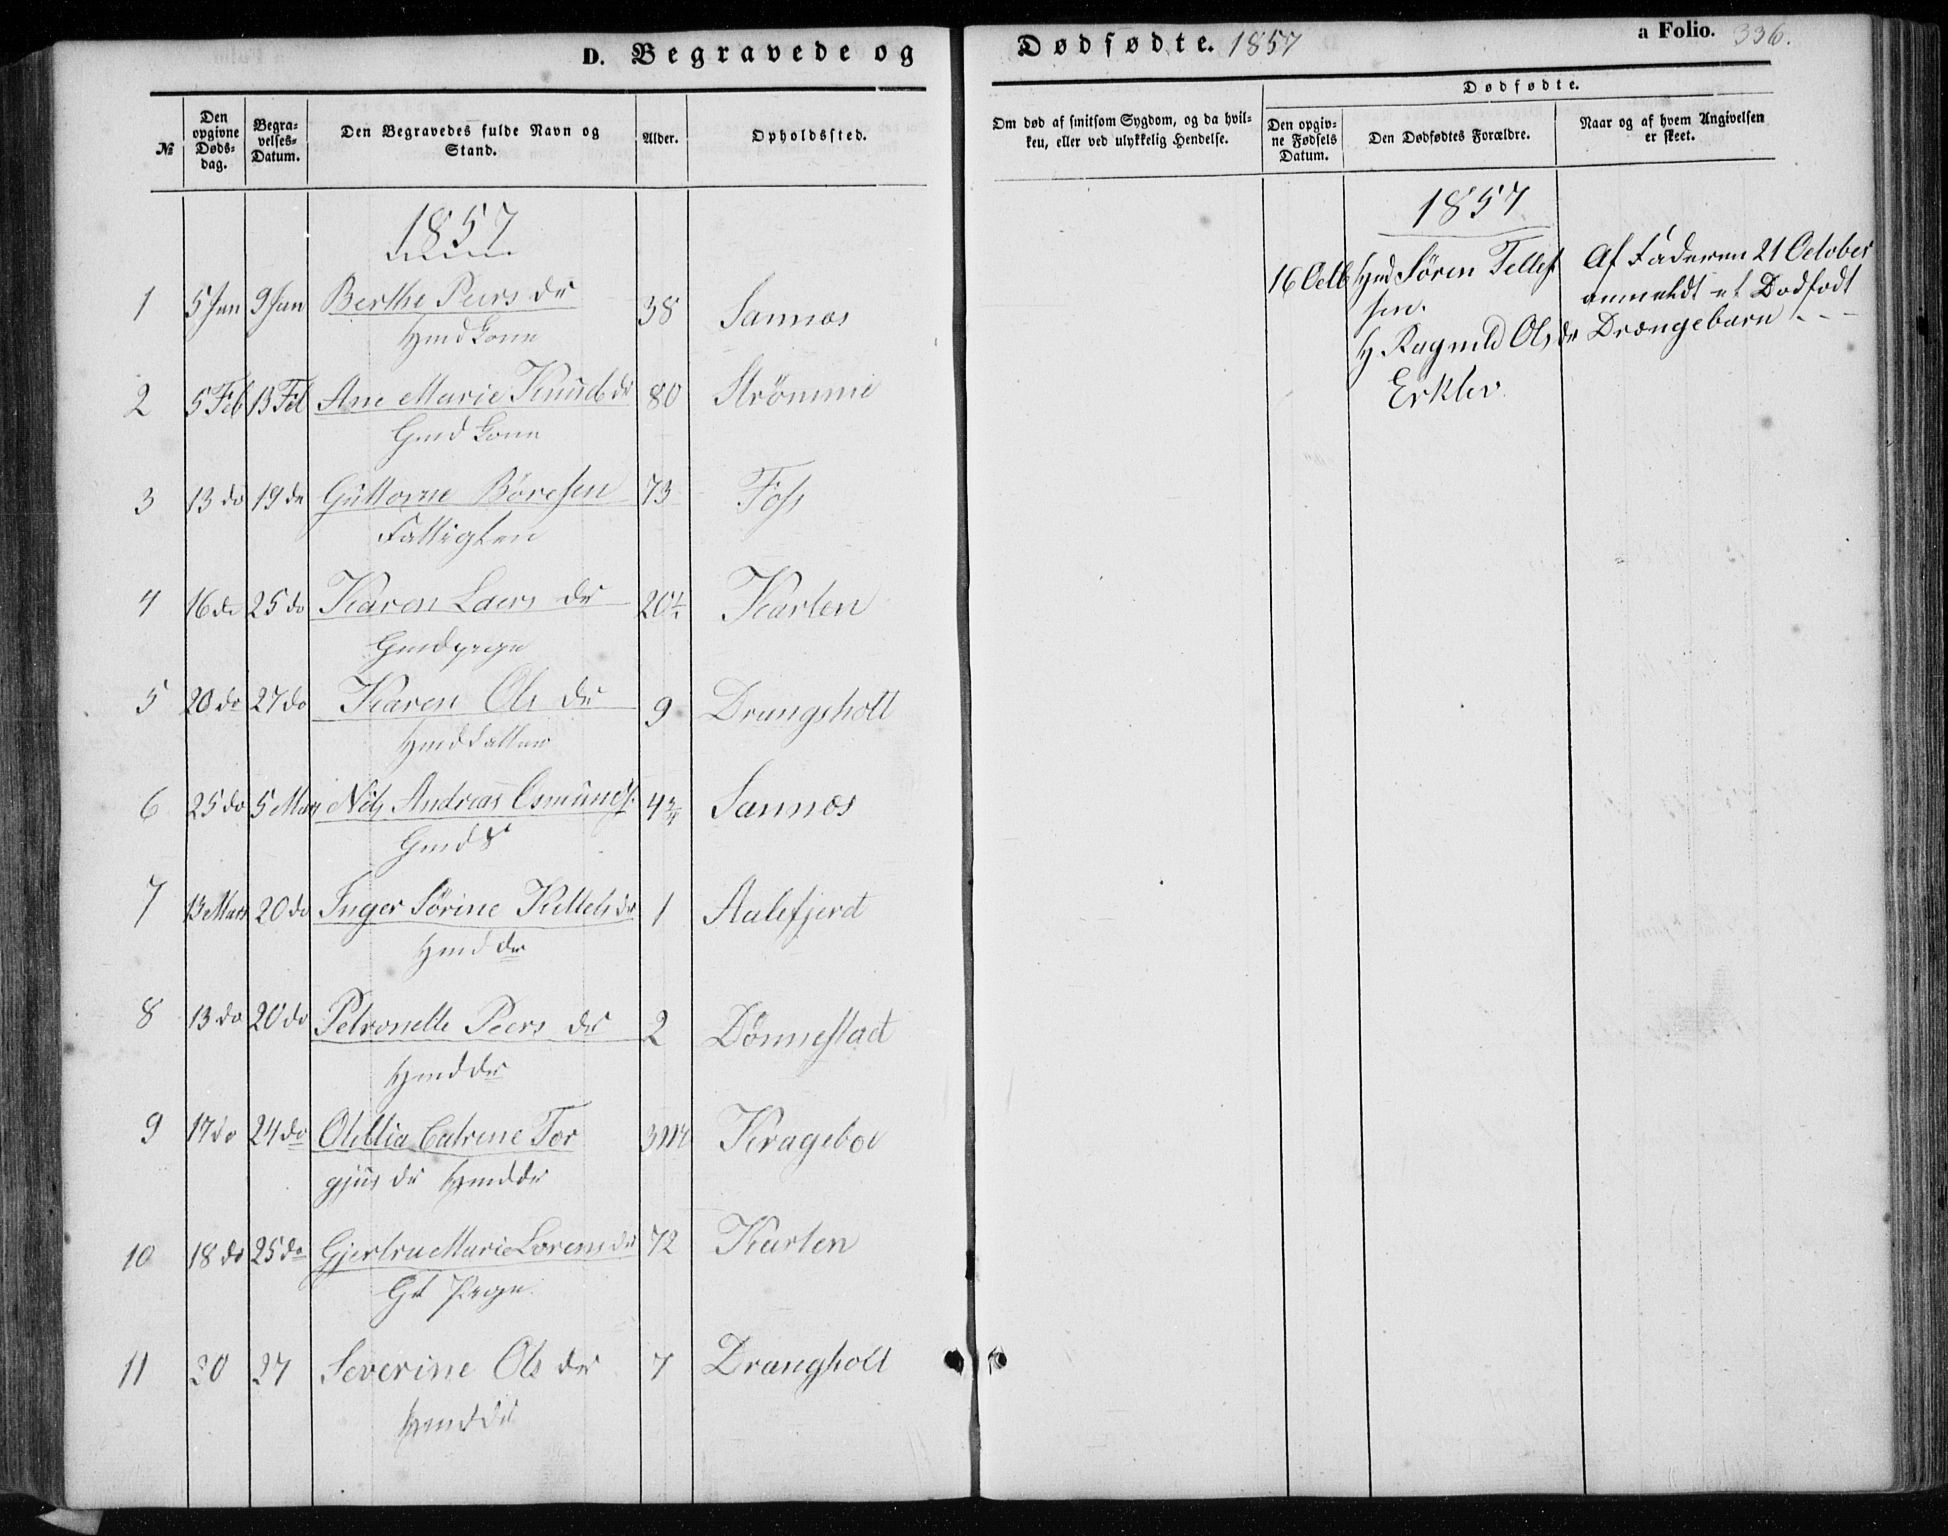 D. Begravede og Dødfødte. 1857
a Folio. 336.
№
Den opgivne Døds-dag.
Begra-velses-Datum.
Den Begravedes fulde Navn og Stand.
Alder.
Opholdssted.
Om død af smitsom Sygdom, og da hvil-
ken, eller ved ulykkelig Hendelse.
Dødfødte.
Den opgiv-ne Fødsels Datum.
Den Dødfødtes Forældre.
Naar og af hvem Angivelsen er skeet.
1857
1 5 Jan 9 Jan Berthe Peersdr 38 Sannes
Hmd Kone
2 5 Feb 13 Feb Ane Marie Knudsdr 80 Strømme
Gmd Kone
3 13 do 19 do Guttorm Børesen 73 Foss
Fattiglem
4 16 do 25 do Karen Laers dr 20½ Karlen
Gmdpige
5 20 do 27 do Karen Ols dr 9 Drangsholt
Hmd datter
6 25 do 5 Mars Nils Andreas Osmunds. 4¾ Sannes
Gmd S
7 13 Mars 20 do Inger Sørine Kittelsdr 1 Aalefjerd
Hmd dr
8 13 do 20 do Petronelle Peers dr 2 Dønnestad
Hmd dr
9 17 do 24 do Otillia Catrine Tor 3 M Krageboe
gjus dr Hmd dr
10 18 do 25 do Gjertru Marie Lorensdr 72 Karlen
Gl Pige
11 20 27 Severine Ols dr 7 Drangholt
Hmd dr
1857
16 Octb Hmd Søren Tellef Af Faderen 21 October
sen. anmeldt et Dødfødt
H Ragnild Olsdr Drængebarn
Erklev.